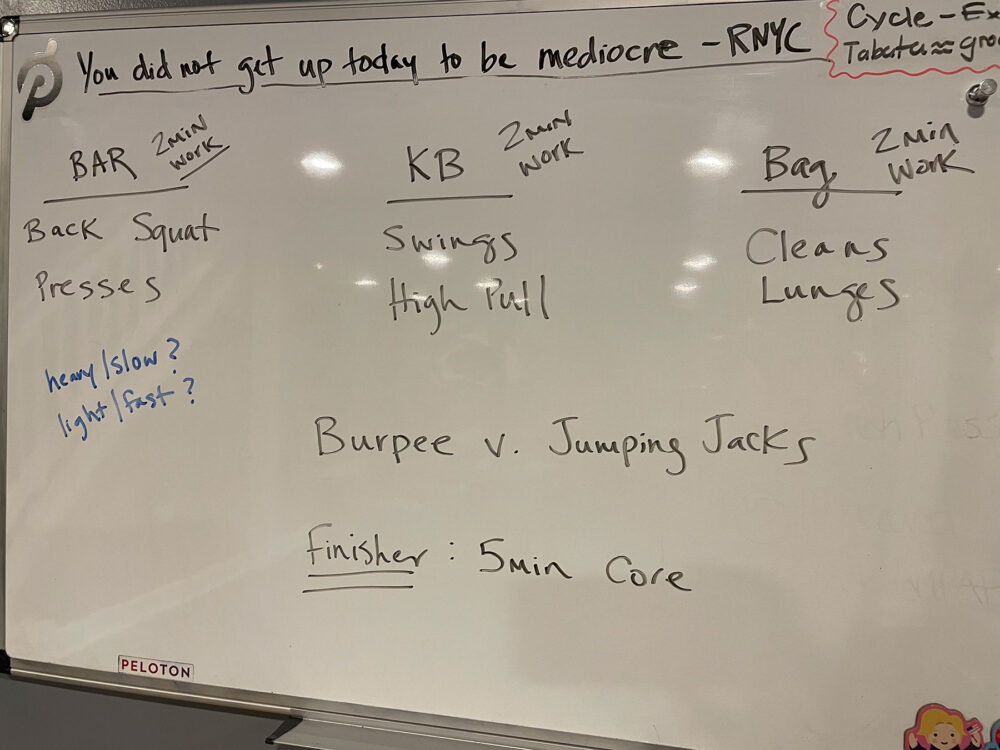 You did not get up today to be mediocre - RNYC
Cycle - Ex
Tabata ≈ gro
BAR 2 MIN WORK
Back Squat
Presses
heavy/slow?
light/fast?
KB 2 MIN WORK
Swings
High Pull
Bag 2 Min Work
Cleans
Lunges
Burpee v. Jumping Jacks
Finisher: 5 min Core
PELOTON